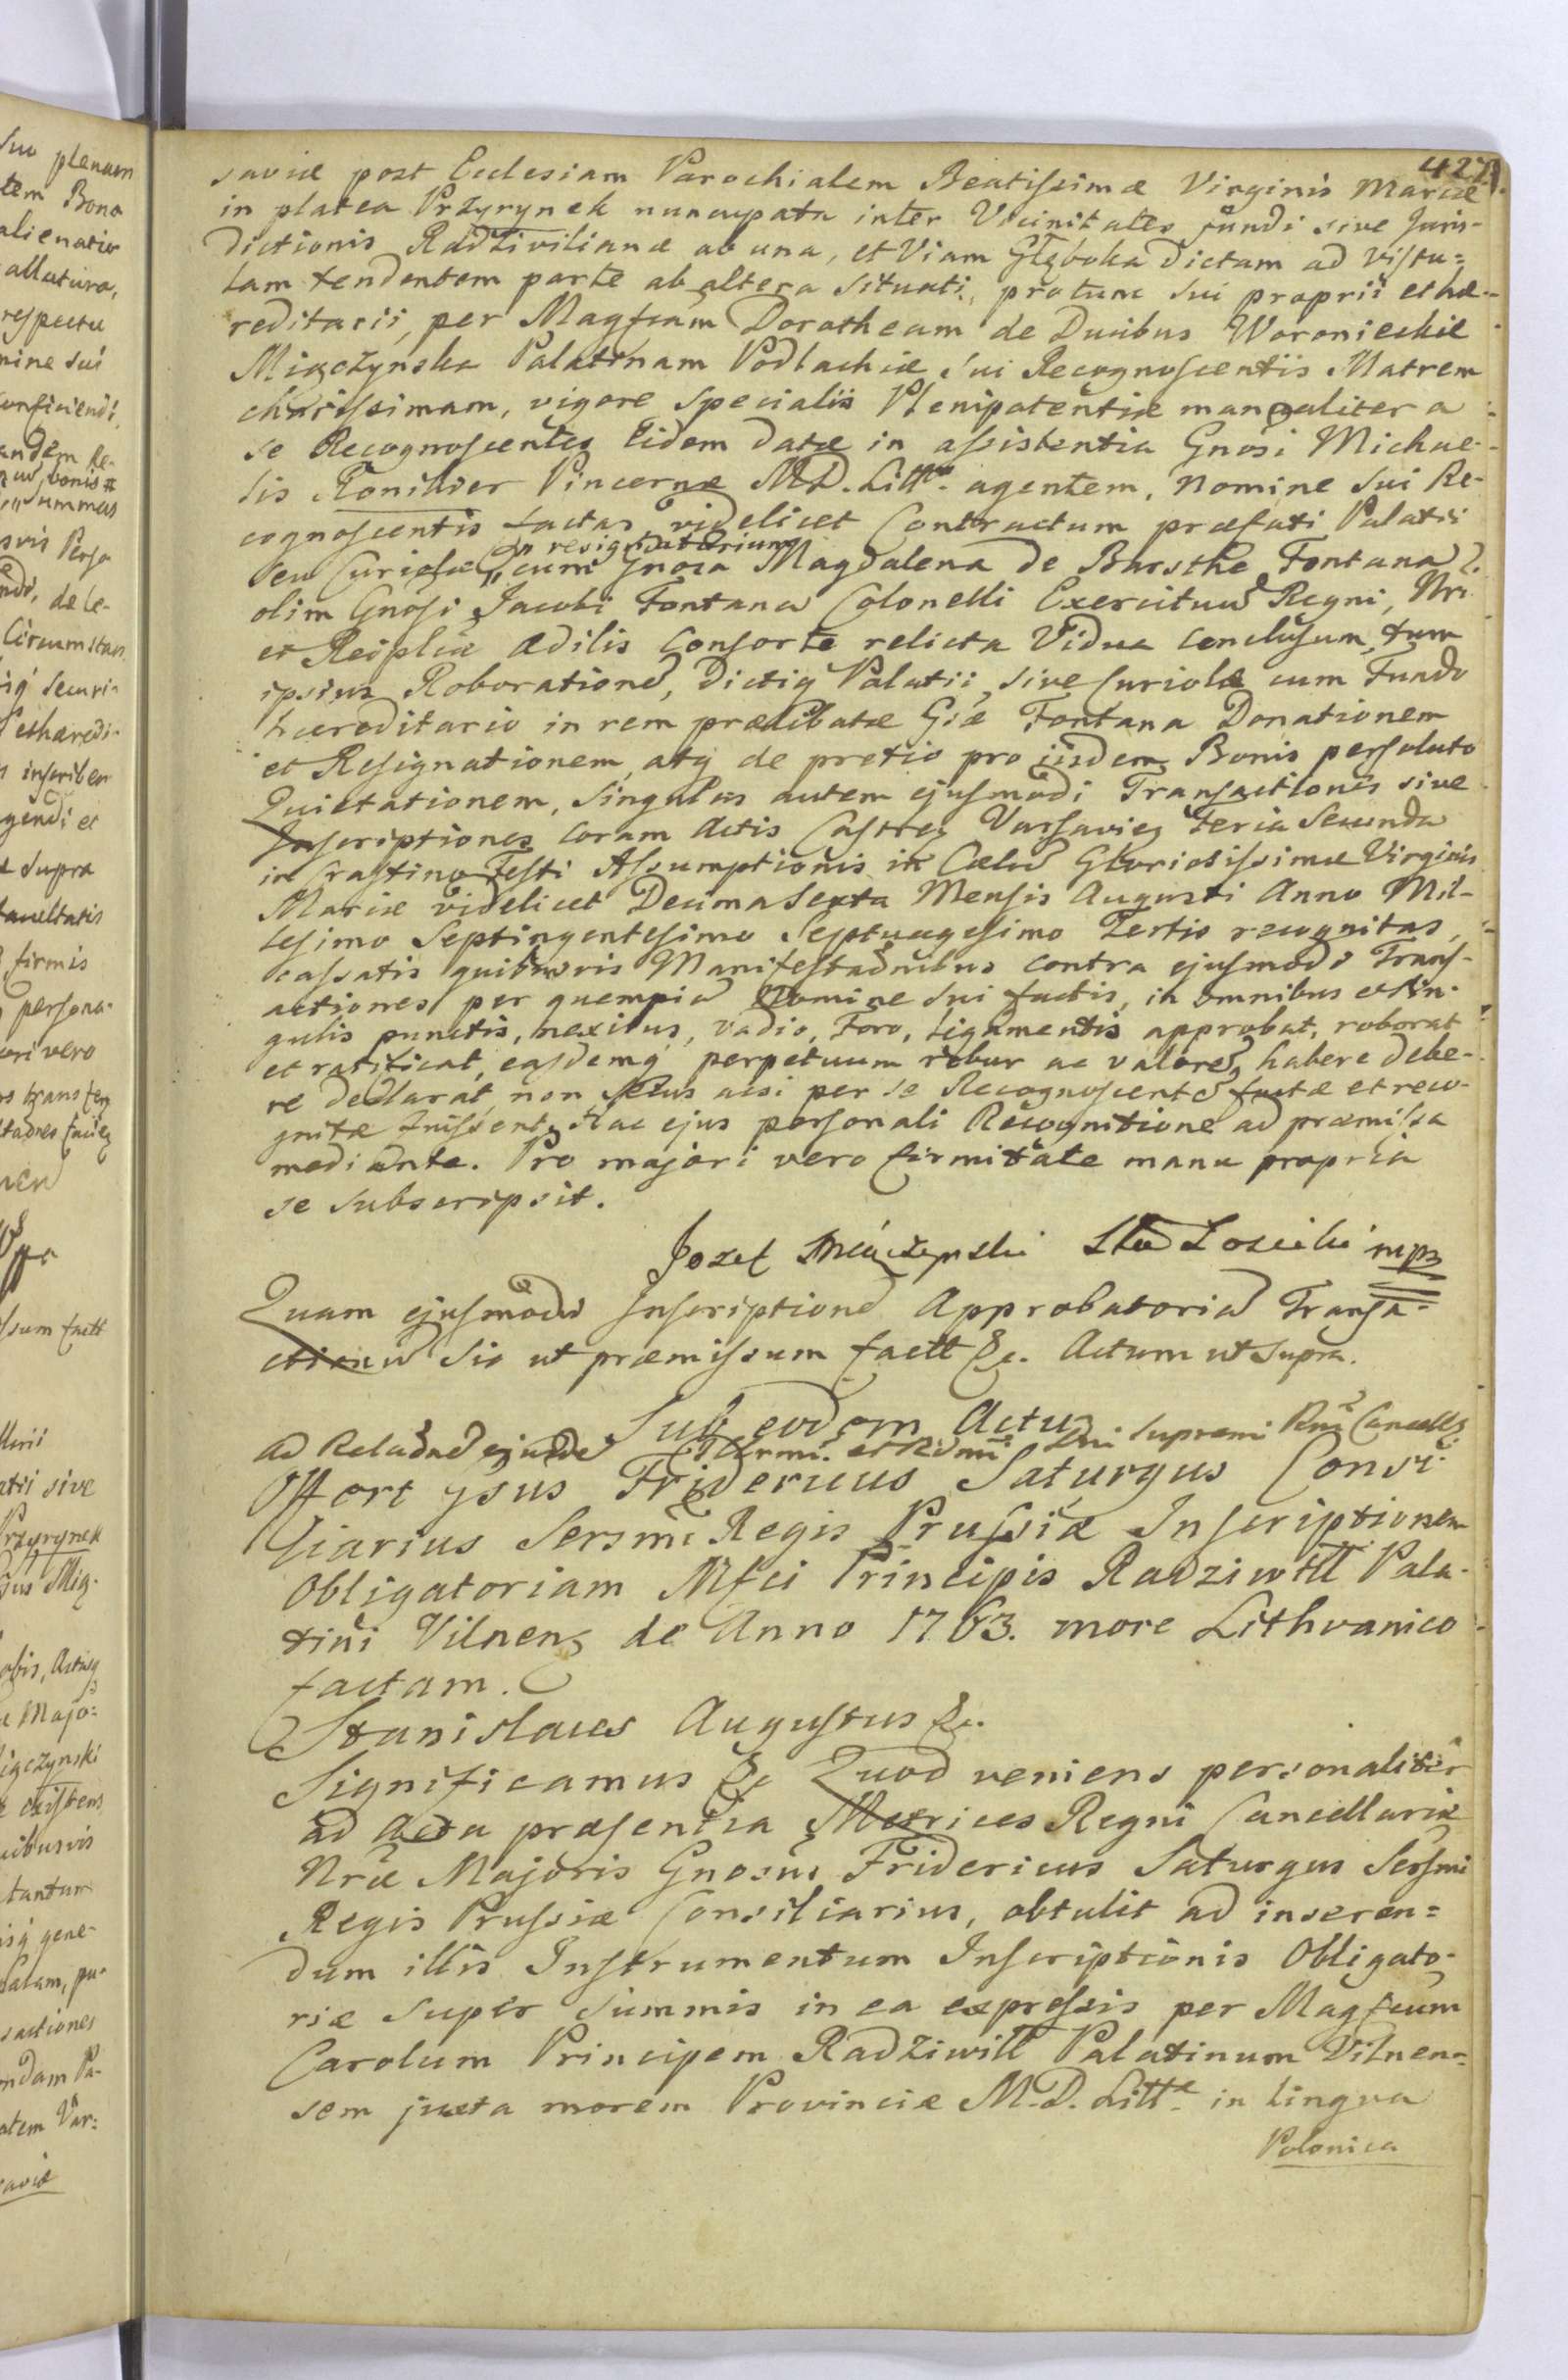 427.
saviæ post Ecclesiam Parochialem Beatissimæ Virginis Mariæ
in platea Przyrynek nuncupata inter Vicinitates fundi sive Juris-
dictionis Radziviliana ab una, et Viam Głęboka dictam ad Vistu=
lam tendentem parte ab altera situati, protunc sui proprii et hæ-
reditarii, per Magfcam Dorotheam de Ducibus Woronieckie
Miączynska Palatinam Podlachiæ sui Recognoscentis Matrem
charissimam, vigore specialis Plenipotentiæ manualiter a
se Recognoscente Eidem datæ in assistentia Gnosi Michae-
lis Roniker Pincernæ M.D. Litt. agentem, Nomine sui Re-
cognoscentis factas, videlicet Contractum præfati Palatii
seu Curiolæ resignatorium cum Gnosa Magdalena de Barsthe Fontana
olim Gnosi Jacobi Fontana Colonelli Exercituum Regni, Nri
et Reiplcæ Ædilis Consorte relicta Vidua conclusum, tum
ipsius Roborationem, dictiq Palatii, sive Curiolæ cum Fundo
hæreditario in rem prælibatæ Gsæ Fontana Donationem
et Resignationem, atq de pretio pro iisdem Bonis persoluto
Quietationem, singulas autem ejusmodi Transactiones sive
Inscriptiones coram Actis Castren Varsavien Feria Secunda
in Crastino Festi Assumptionis in Cælum Gloriosissimæ Virginis
Mariæ videlicet Decima Sexta Mensis Augusti Anno Mil-
lesimo Septingentesimo Septuagesimo Tertio recognitas,
cassatis quibusvis Manifestaonibus contra ejusmodi Trans-
actiones per quempiam Nomine sui factis, in omnibus et sin-
gulis punctis, nexibus, vadio, foro, ligamentis approbat, roborat
et ratificat, easdemq perpetuum robur ac valorem habere debe-
re declarat, non secus acsi per se Recognoscentem factæ et reco-
gnitæ fuissent, Hac ejus personali Recognitione ad præmissa
mediante. Pro majori vero firmitate manu propria
se subscripsit.
Jozef Miączynski Sta Łosicki mpr
Quam ejusmodi Inscriptionem Approbatoriam Transa-
ctionum sic ut præmissum factt &c. Actum ut supra.
Sub eodem Actu
Ad Relaonem ejusdem Illrmi. et Rdmi Dni Supremi Rni Cancell
Offert ysus Fridericus Saturgus Consi-
liarius Sersmi Regis Prussiæ Inscriptionem
Obligatoriam Mfci Principis Radziwill Pala-
tini Vilnen de Anno 1763. more Lithvanico
factam.
Stanislaus Augustus &c.
Significamus &c Quod veniens personaliter
ad Acta præsentia Metrices Regni Cancellariæ
Nræ Majoris Gnosus Fridericus Saturgus Sersmi
Regis Prussiæ Consiliarius, obtulit ad inseren=
dum illis Instrumentum Inscriptionis Obligato-
riæ super summis in ea expressis per Magfcum
Carolum Principem Radziwill Palatinum Vilnen=
sem juxta morem Provinciæ M.D. Litt. in lingua
Polonica